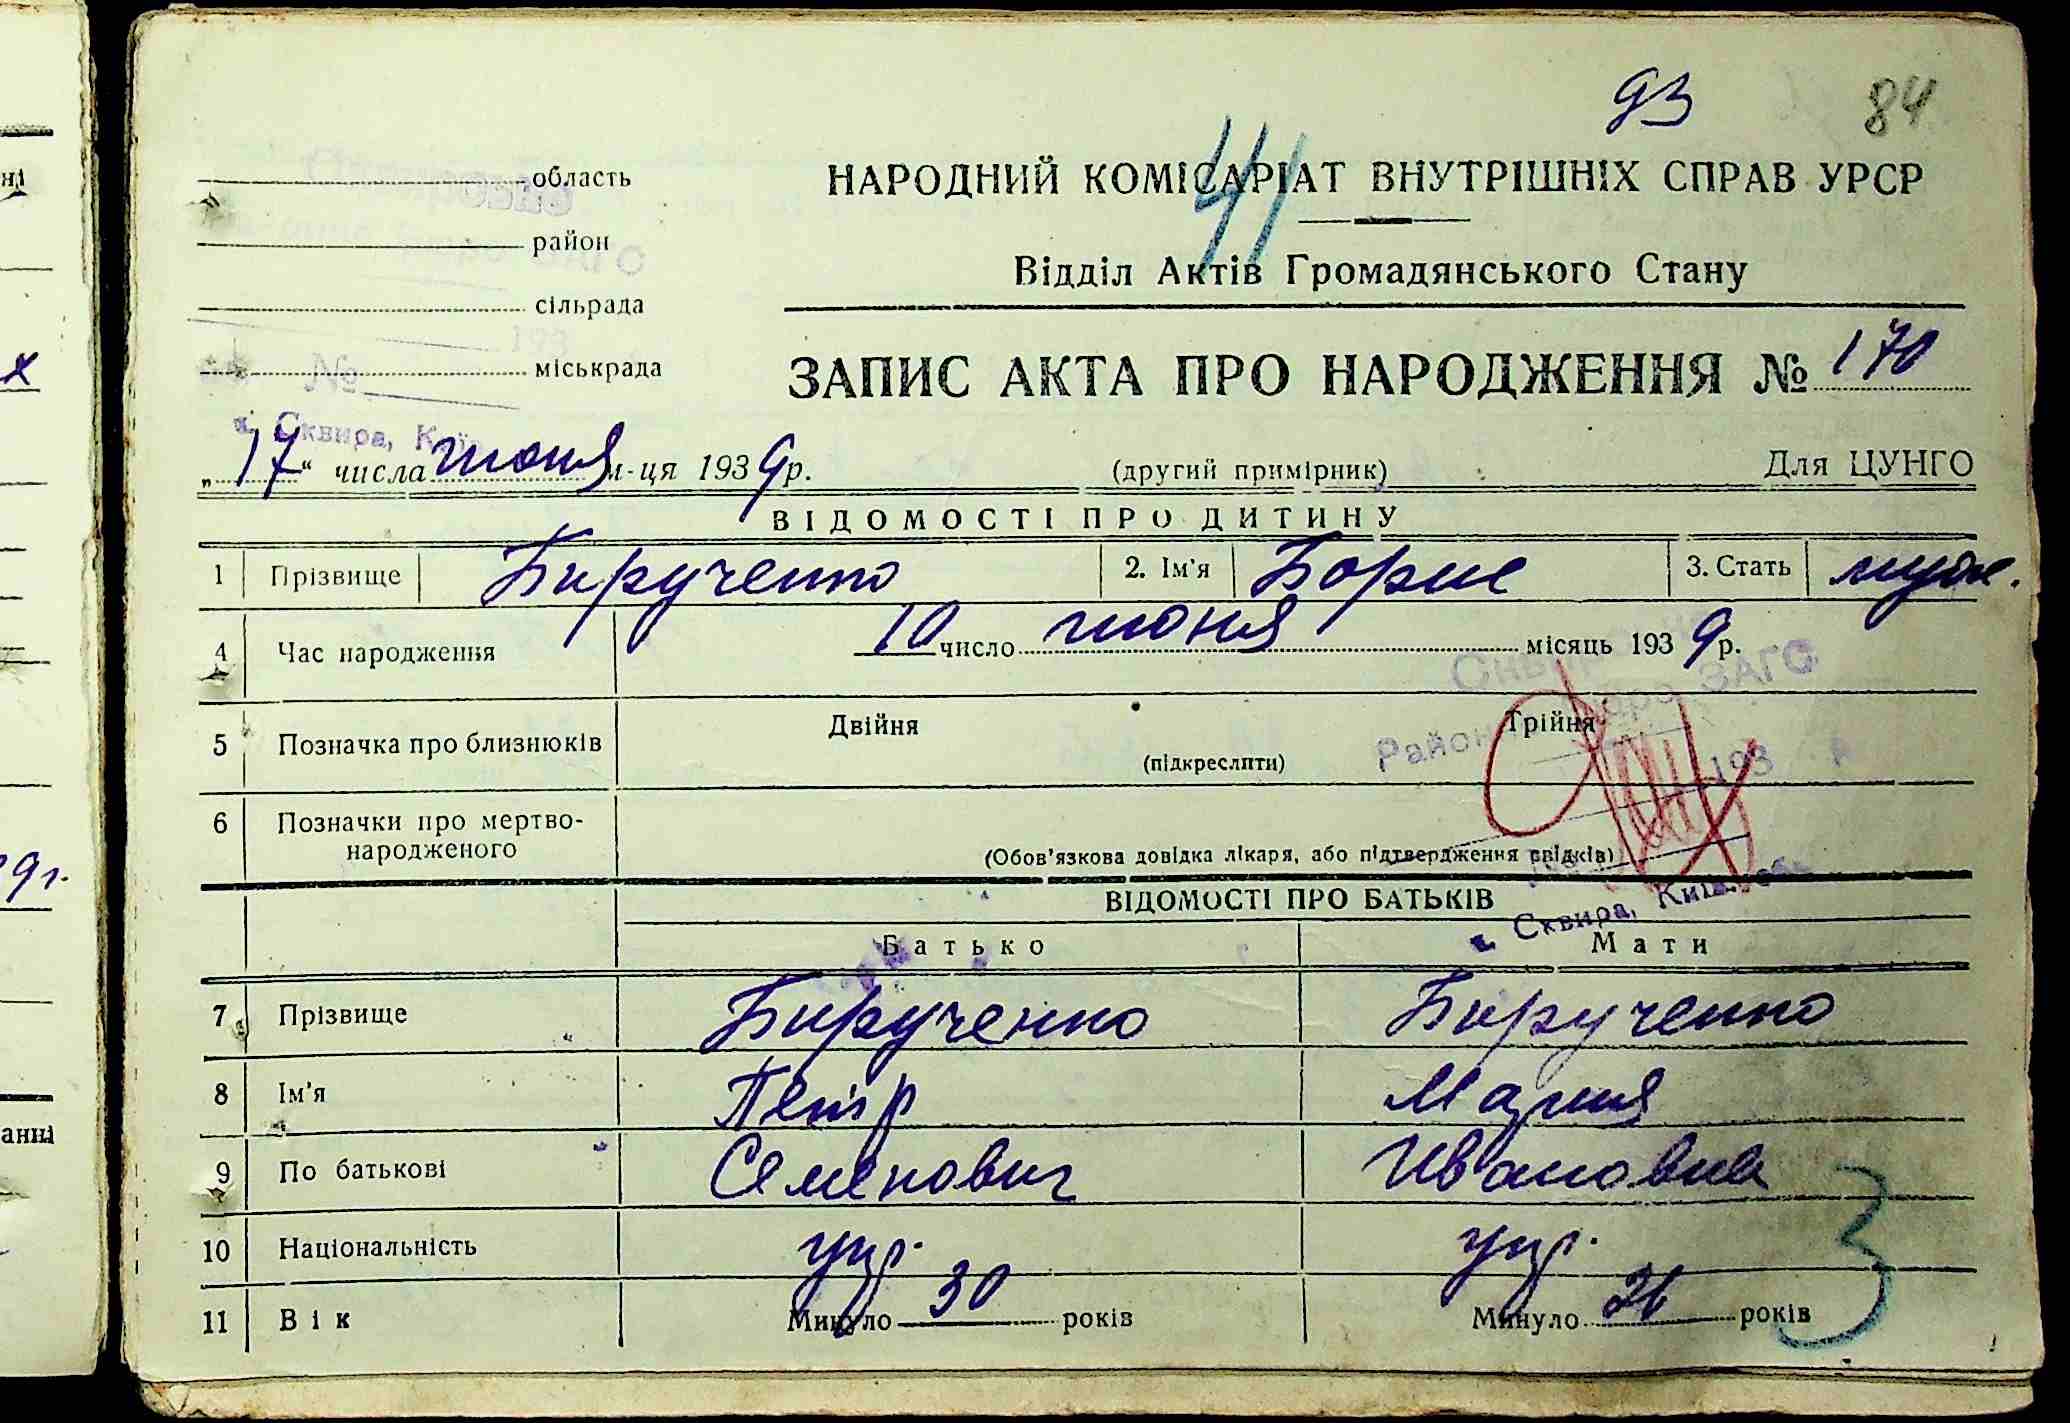 93 84
41
область
НАРОДНИЙ КОМІСАРІАТ ВНУТРІШНІХ СПРАВ УРСР
район
Відділ Актів Громадянського Стану
сільрада
193
міськрада
№
ЗАПИС АКТА ПРО НАРОДЖЕННЯ № 170
м. Сквира, Київ
„17“ числа июня м-ця 1939 р. (другий примірник) Для ЦУНГО
ВІДОМОСТІ ПРО ДИТИНУ
1 Прізвище Бирученко 2. Ім'я Борис 3. Стать муж.
4 Час народження 10 число июня місяць 1939 р.
5 Позначка про близнюків Двійня Трійня
(підкреслити)
Район бюро ЗАГС
193 р
6 Позначки про мертво-
народженого
(Обов'язкова довідка лікаря, або підтвердження свідків)
м. Сквира, Київ. обл
ВІДОМОСТІ ПРО БАТЬКІВ
Батько Мати
7 Прізвище Бирученко Бирученко
8 Ім'я Петр Мария
9 По батькові Семенович Ивановна
10 Національність укр. укр.
11 Вік Минуло 30 років Минуло 26 років
3
ні
х
9г.
анні